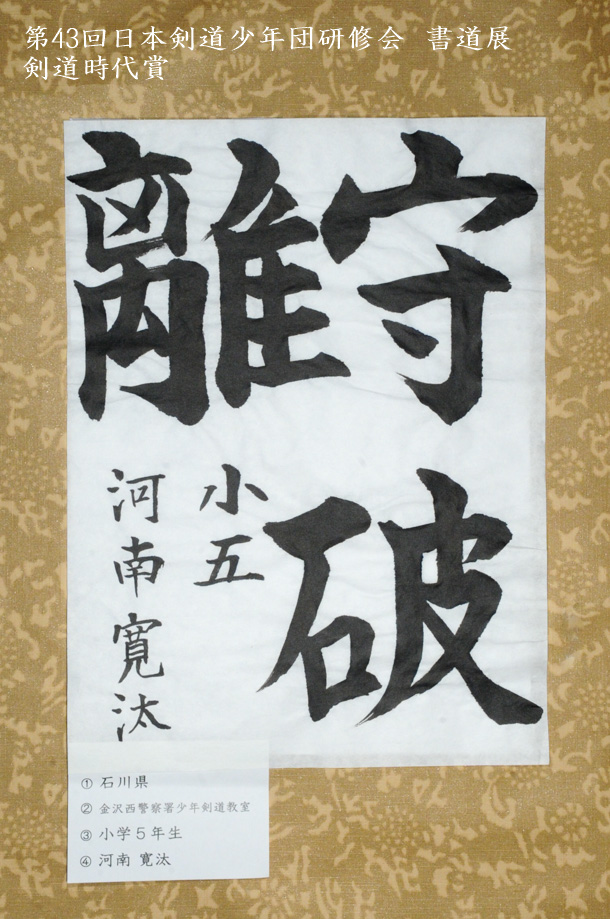 第43回日本剣道少年団研修会 書道展
剣道時代賞
守破
離
小五
河南寛汰
① 石川県
② 金沢西警察署少年剣道教室
③ 小学5年生
④ 河南 寛汰